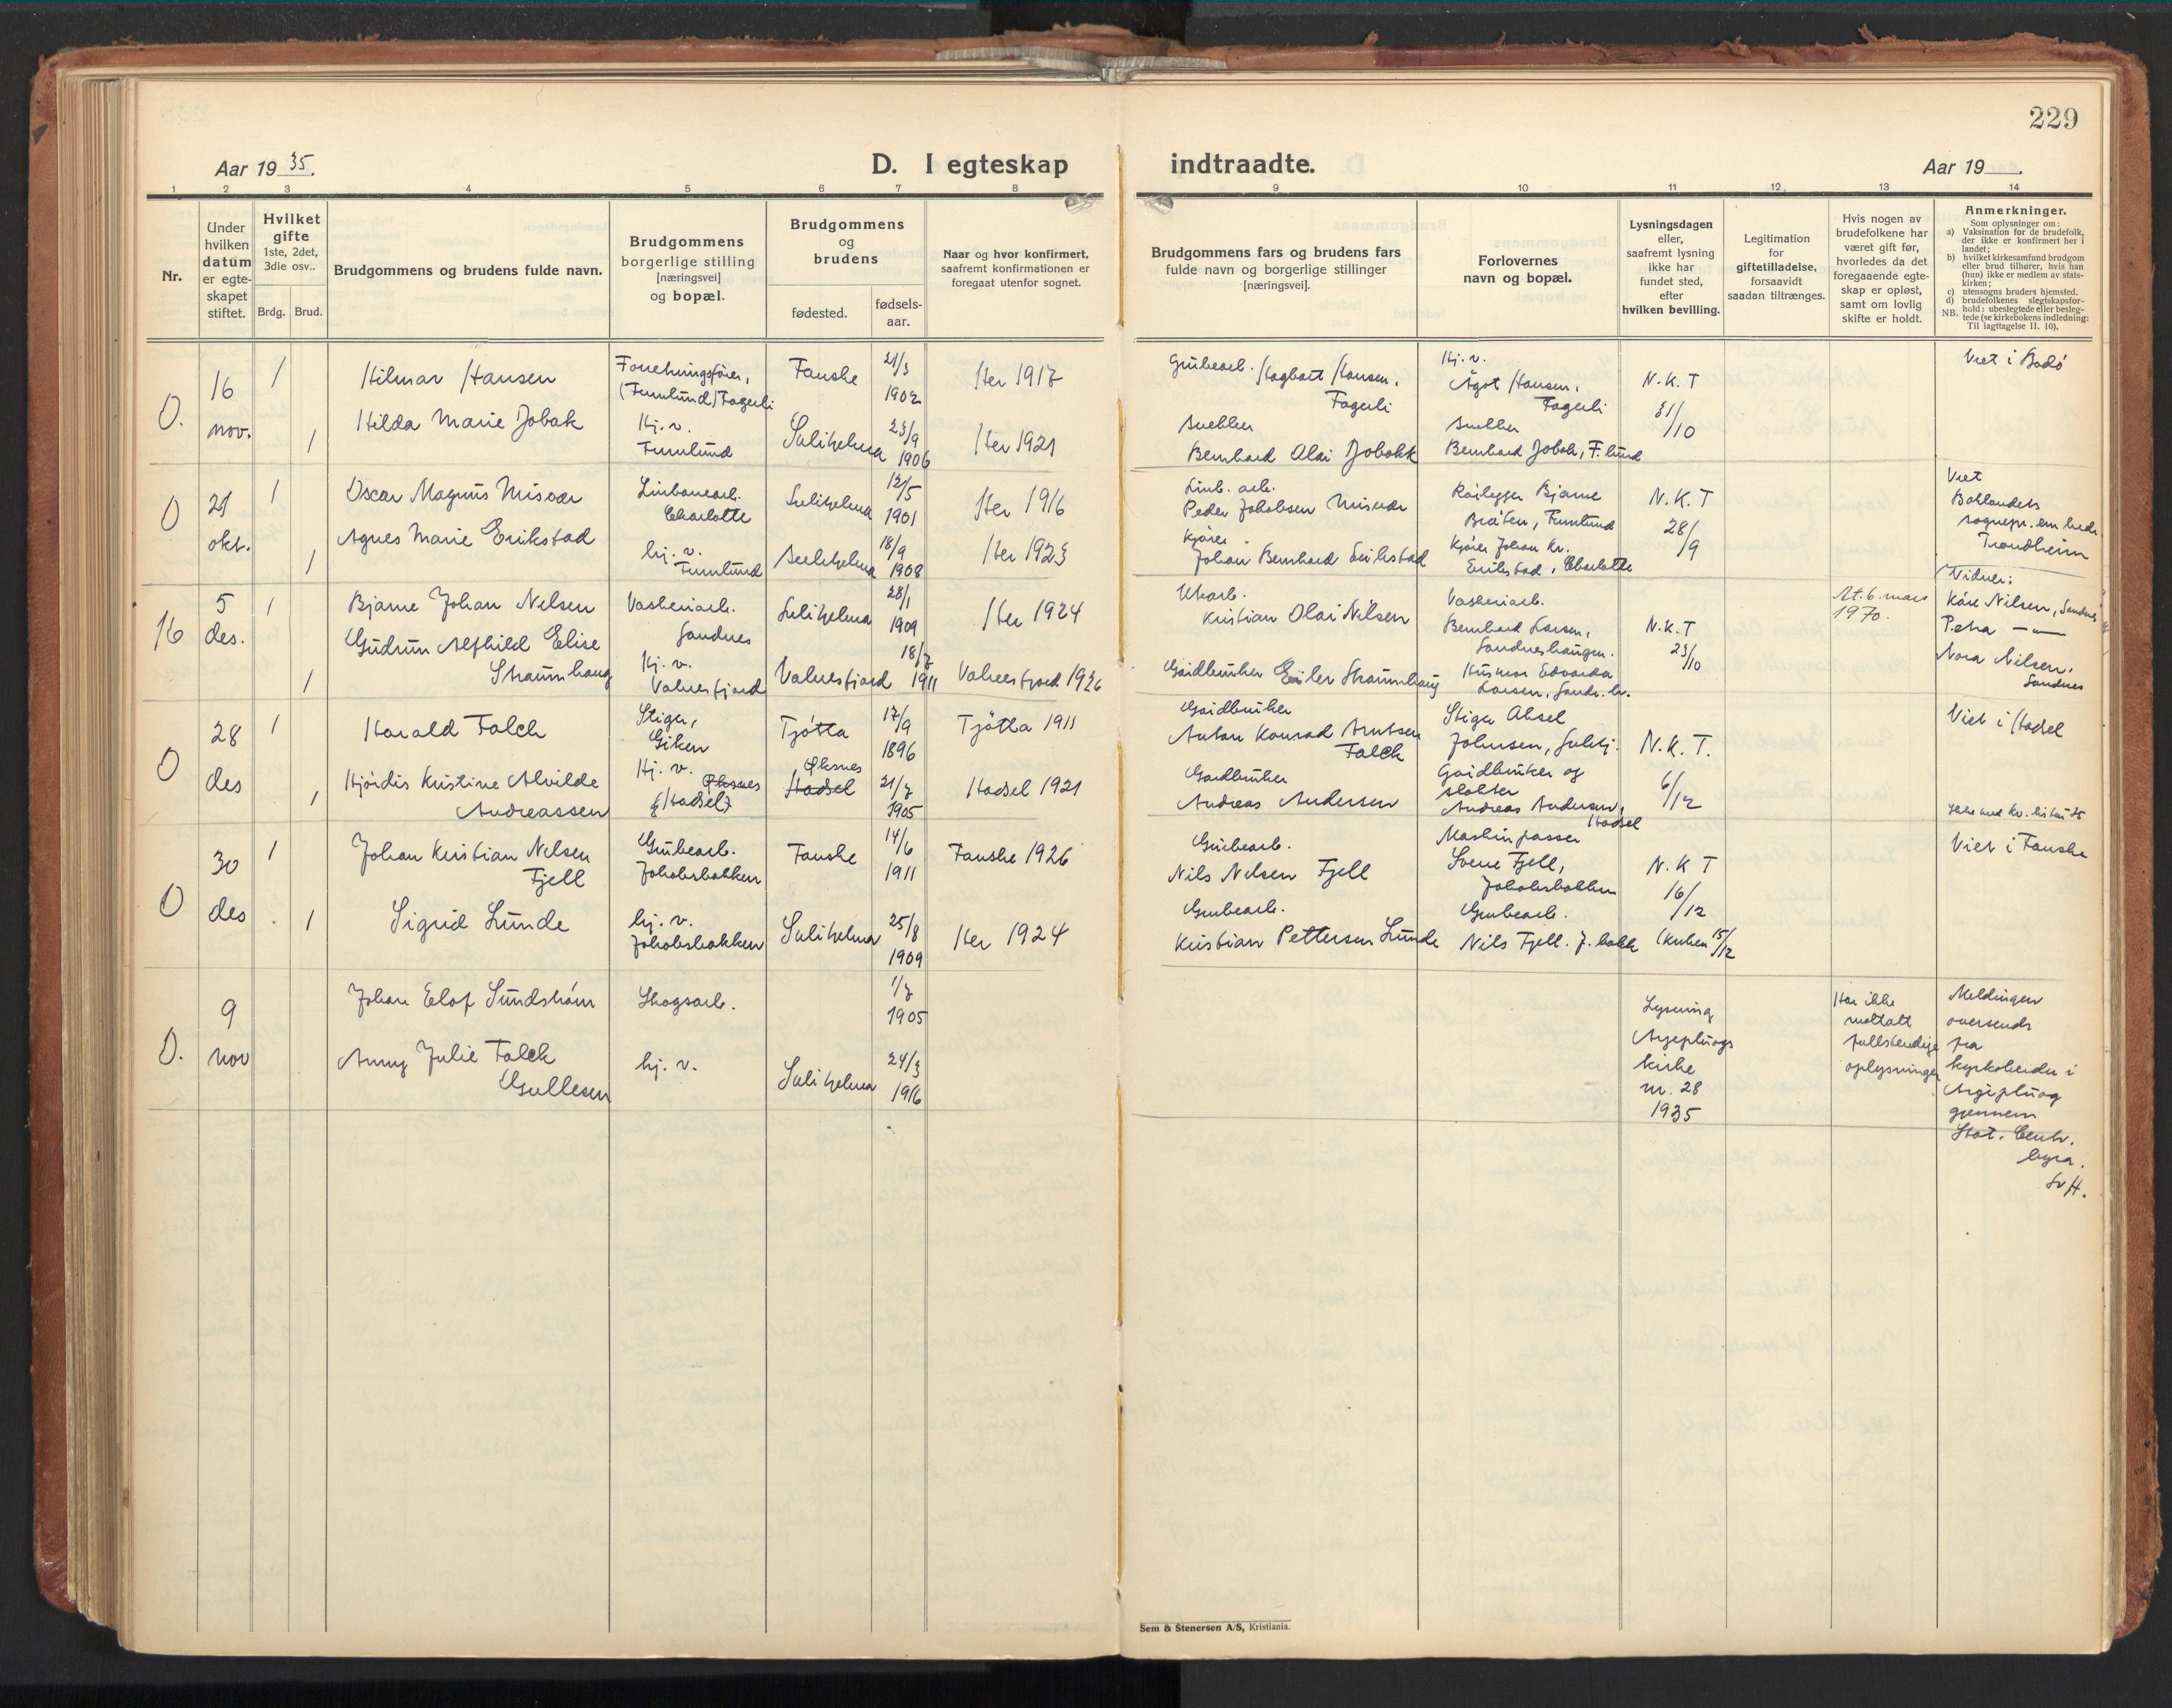 229
Aar 1935.
D. I egteskap
indtraadte.
Aar 19
1 2 3 4 5 6 7 8 9 10 11 12 13 14
Nr.
Under
hvilken
datum
er egte-
skapet
stiftet.
Hvilket
gifte
1ste, 2det,
3die osv..
Brdg. Brud.
Brudgommens og brudens fulde navn.
Brudgommens
borgerlige stilling
[næringsvei]
og bopæl.
Brudgommens
og
brudens
fødested.
fødsels-
aar.
Naar og hvor konfirmert,
saafremt konfirmationen er
foregaat utenfor sognet.
Brudgommens fars og brudens fars
fulde navn og borgerlige stillinger
[næringsvei].
Forlovernes
navn og bopæl.
Lysningsdagen
eller,
saafremt lysning
ikke har
fundet sted,
efter
hvilken bevilling.
Legitimation
for
giftetilladelse,
forsaavidt
saadan tiltrænges.
Hvis nogen av
brudefolkene har
været gift før,
hvorledes da det
foregaaende egte-
skap er opløst,
samt om lovlig
skifte er holdt.
Anmerkninger.
Som oplysninger om:
a) Vaksination for de brudefolk,
der ikke er konfirmert her i
landet;
b) hvilket kirkesamfund brudgom
eller brud tilhører, hvis han
(hun) ikke er medlem av stats-
kirken;
c) utensogns bruders hjemsted.
d) brudefolkenes slegtskapsfor-
hold: ubeslegtede eller besleg-
NB. tede (se kirkebokens indledning:
Til iagttagelse II. 10).
0.
16
nov.
1
Hilmar Hansen
(Furulund) Fagerli
Fauske
21/3
1902
Her 1917
Grubearb. Hagbart Hansen,
Fagerli
Hj. v.
Ågot Hansen,
Fagerli
N.K.T
31/10
Viet i Bodø
1
Hilda Marie Jobak
Hj. v.
Furulund
Sulitjelma
23/9
1906
Her 1921
Snekker
Bernhard Olai Jobakk
Snekker
Bernhard Jobak, F.lund
0
21
okt.
1
Oscar Magnus Misvær
Linbanearb.
Charlotte
Sulitjelma
12/5
1901
Her 1916
Linb. arb.
Peder Jakobsen Misvær
Rørlegger Bjarne
Bråten, Furulund
N.K.T
28/9
Viet
Bakkandets
sognepr. em bede.
Trondheim
1
Agnes Marie Erikstad
hj. v.
Furulund
Sulitjelma
18/9
1908
Her 1923
Kjører
Johan Bernhard Erikstad
Kjører Johan Kr.
Erikstad, Charlotte
16
5
des.
1
Bjarne Johan Nilsen
Vaskeriarb.
Sandnes
Sulitjelma
28/1
1909
Her 1924
Kristian Olai Nilsen
Vaskeriarb.
Bernhard Larsen,
Sandneshaugen.
N.K.T
23/10
At. 6. mars
1970.
Vidner:
Kåre Nilsen, Sandnes
Petra —"—
Nora Nilsen,
Sandnes
1
Gudrun Alfhild Elise
Straumhaug
Hj. v.
Valnesfjord
Valnesfjord
18/7
1911
Valnesfjord 1926
Gårdbruker Eiler Straumhaug
Husmor Edvarda
Larsen, Sandn.h.
0
28
des
1
Harald Falch
Stiger,
Giken
Tjøtta
17/9
1896
Tjøtta 1911
Gårdbruker
Anton Konrad Arntsen
Falch
Stiger Aksel
Johnsen, Sulitj.
N.K.T.
6/12
Viet i Hadsel
1
Hjørdis Kristine Alvilde
Andreassen
Hj. v.
Øksnes
(Hadsel)
Øksnes
Hadsel
21/7
1905
Hadsel 1921
Gårdbruker
Andreas Andersen
Gårdbruker og
slakter
Andreas Andersen,
Hadsel
0
30
des
1
Johan Kristian Nilsen
Fjell
Grubearb.
Jakobsbakken
Fauske
14/6
1911
Fauske 1926
Grubearb.
Nils Nilsen Fjell
Maskinpasser
Sverre Fjell,
Jakobsbakken
N.K.T
16/12
Viet i Fauske
1
Sigrid Lunde
hj. v.
Jakobsbakken
Sulitjelma
25/8
1909
Her 1924
Grubearb.
Kristian Pettersen Lunde
Grubearb.
Nils Fjell. J.bakk
(kirken 15/12
0.
9
nov
Johan Elof Sundström
Skogsarb.
1/7
1905
Lysning
Arjepluogs
kirke
nr. 28
1935
Har ikke
mottatt
fullstendige
oplysninger
Meldingen
oversendt
fra
kyrkoherden i
Arjepluog
gjennem
Stat. Centr.
byra.
Sv H.
Anny Julie Falch
Gullesen
hj. v.
Sulitjelma
24/3
1916
Sem & Stenersen A/S, Kristiania.